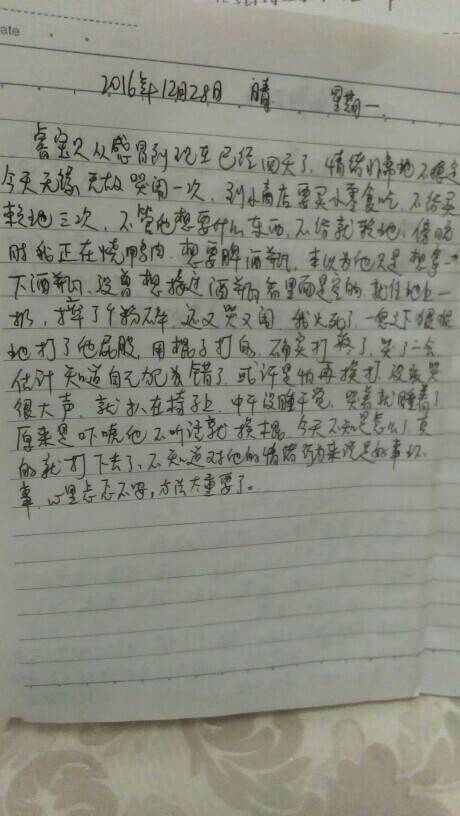 ate
2016年12月28日 晴 星期一
睿宝又从感冒到现在已经四天了，情绪非常地不稳定
今天无缘无故哭闹一次，到小商店要买小零食吃，不给买
赖地三次，不管他想要什么东西，不给就赖地，傍晚
时我正在烧鸭肉，想要啤酒瓶，本以为他只是想拿一
下酒瓶，没曾想接过酒瓶看里面是空的，就往地上一
扔，摔了个粉碎，还又哭又闹，我火死了，一怒之下狠狠
地打了他屁股，用棍子打的，确实打疼了，哭了一会
估计知道自己犯为错了，或许是怕再挨打没敢哭
很大声，就趴在椅子上，中午没睡午觉，哭着就睡着了
原来是吓唬他不听话就挨棍，今天不知是怎么了真
的就打下去了，不知道对他的情绪方来说是好事坏
事，心里忐忑不安，方法太重要了。